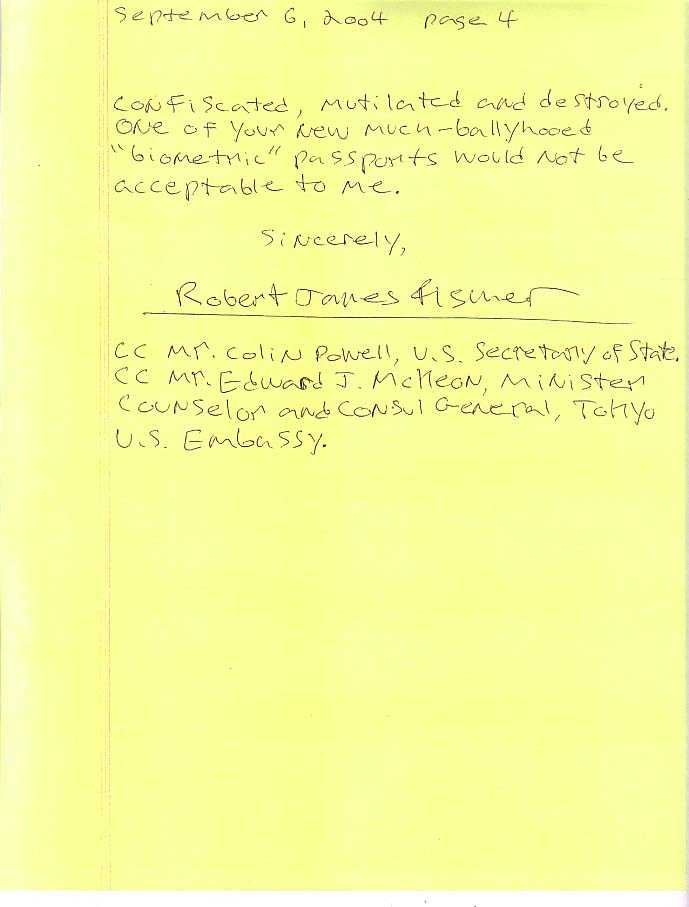 September 6, 2004 page 4
confiscated, mutilated and destroyed.
One of your new much-ballyhooed
"biometric" passports would not be
acceptable to me.
Sincerely,
Robert James Fischer
CC Mr. Colin Powell, U.S. Secretary of State.
CC Mr. Edward J. McKeon, Minister
Counselor and Consul General, Tokyo
U.S. Embassy.